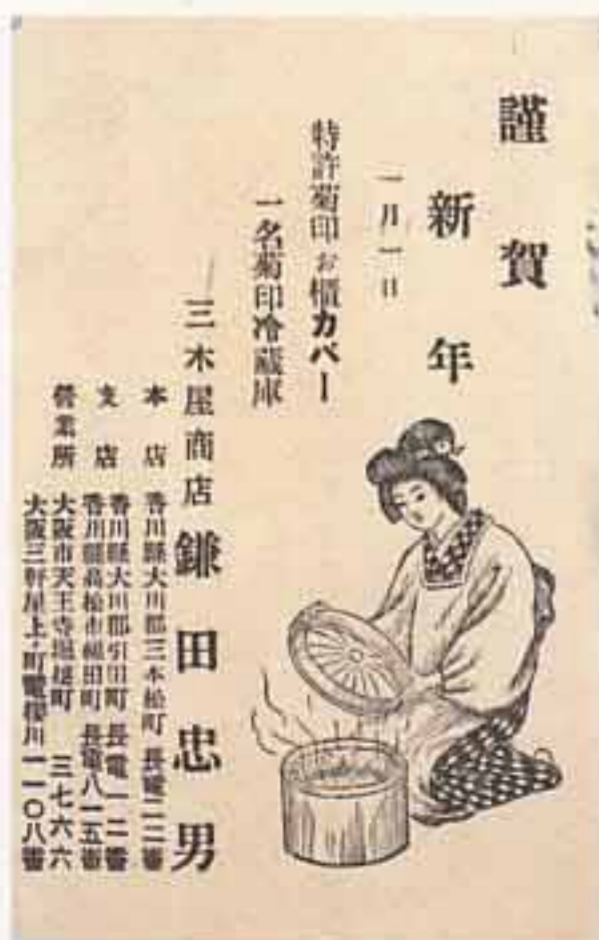 謹賀
新年
一月一日
特許菊印お櫃カバー
一名菊印冷蔵庫
三木屋商店 鎌田忠男
本店 香川縣大川郡三本松町 長電二二番
支店 香川縣大川郡引田町 長電一二番
香川縣高松市福田町 長電八一五番
營業所 大阪市天王寺堀越町 三七六六
大阪三軒屋上ノ町電櫻川一一〇八番